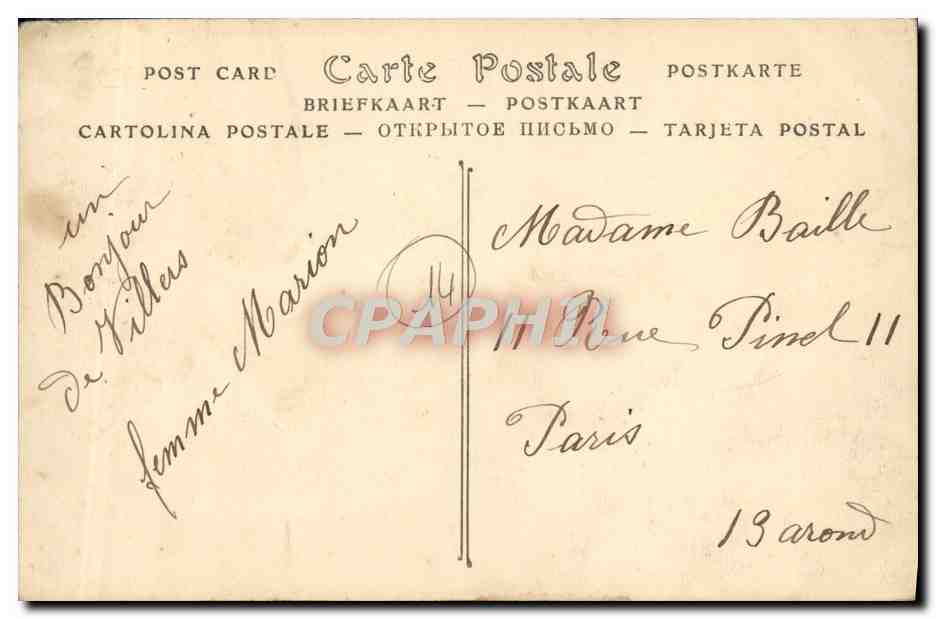 POST CARD Carte Postale POSTKARTE
BRIEFKAART — POSTKAART
CARTOLINA POSTALE — ОТКРЫТОЕ ПИСЬМО — TARJETA POSTAL
un
Bonjour
de Villers
femme Marion
14
CPAPHIL
Madame Baille
11 Rue Pinel 11
Paris
13 arond